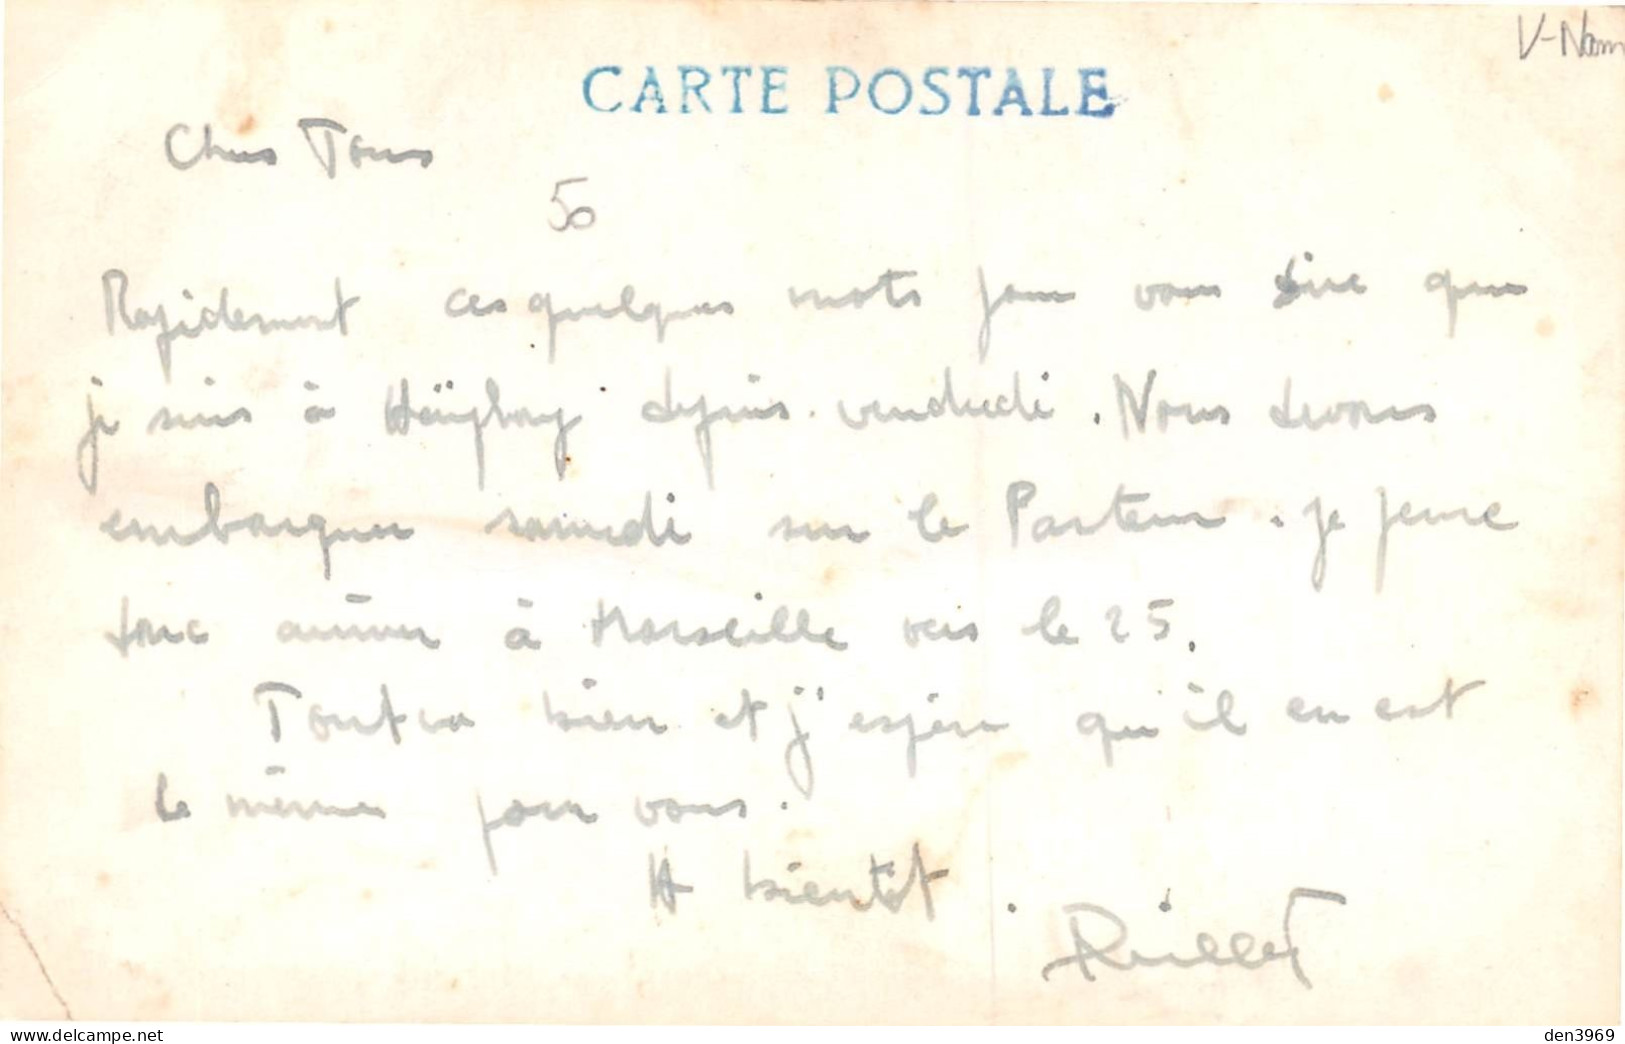 V-Nam
CARTE POSTALE
Chers Tous
50
Rapidement ces quelques mots pour vous dire que
je suis à Haïphong depuis vendredi. Nous devons
embarquer samedi sur le Pasteur. je pense
donc arriver à Marseille vers le 25.
Tout va bien et j'espère qu'il en est
de même pour vous.
A bientôt.
delcampe.net
den3969